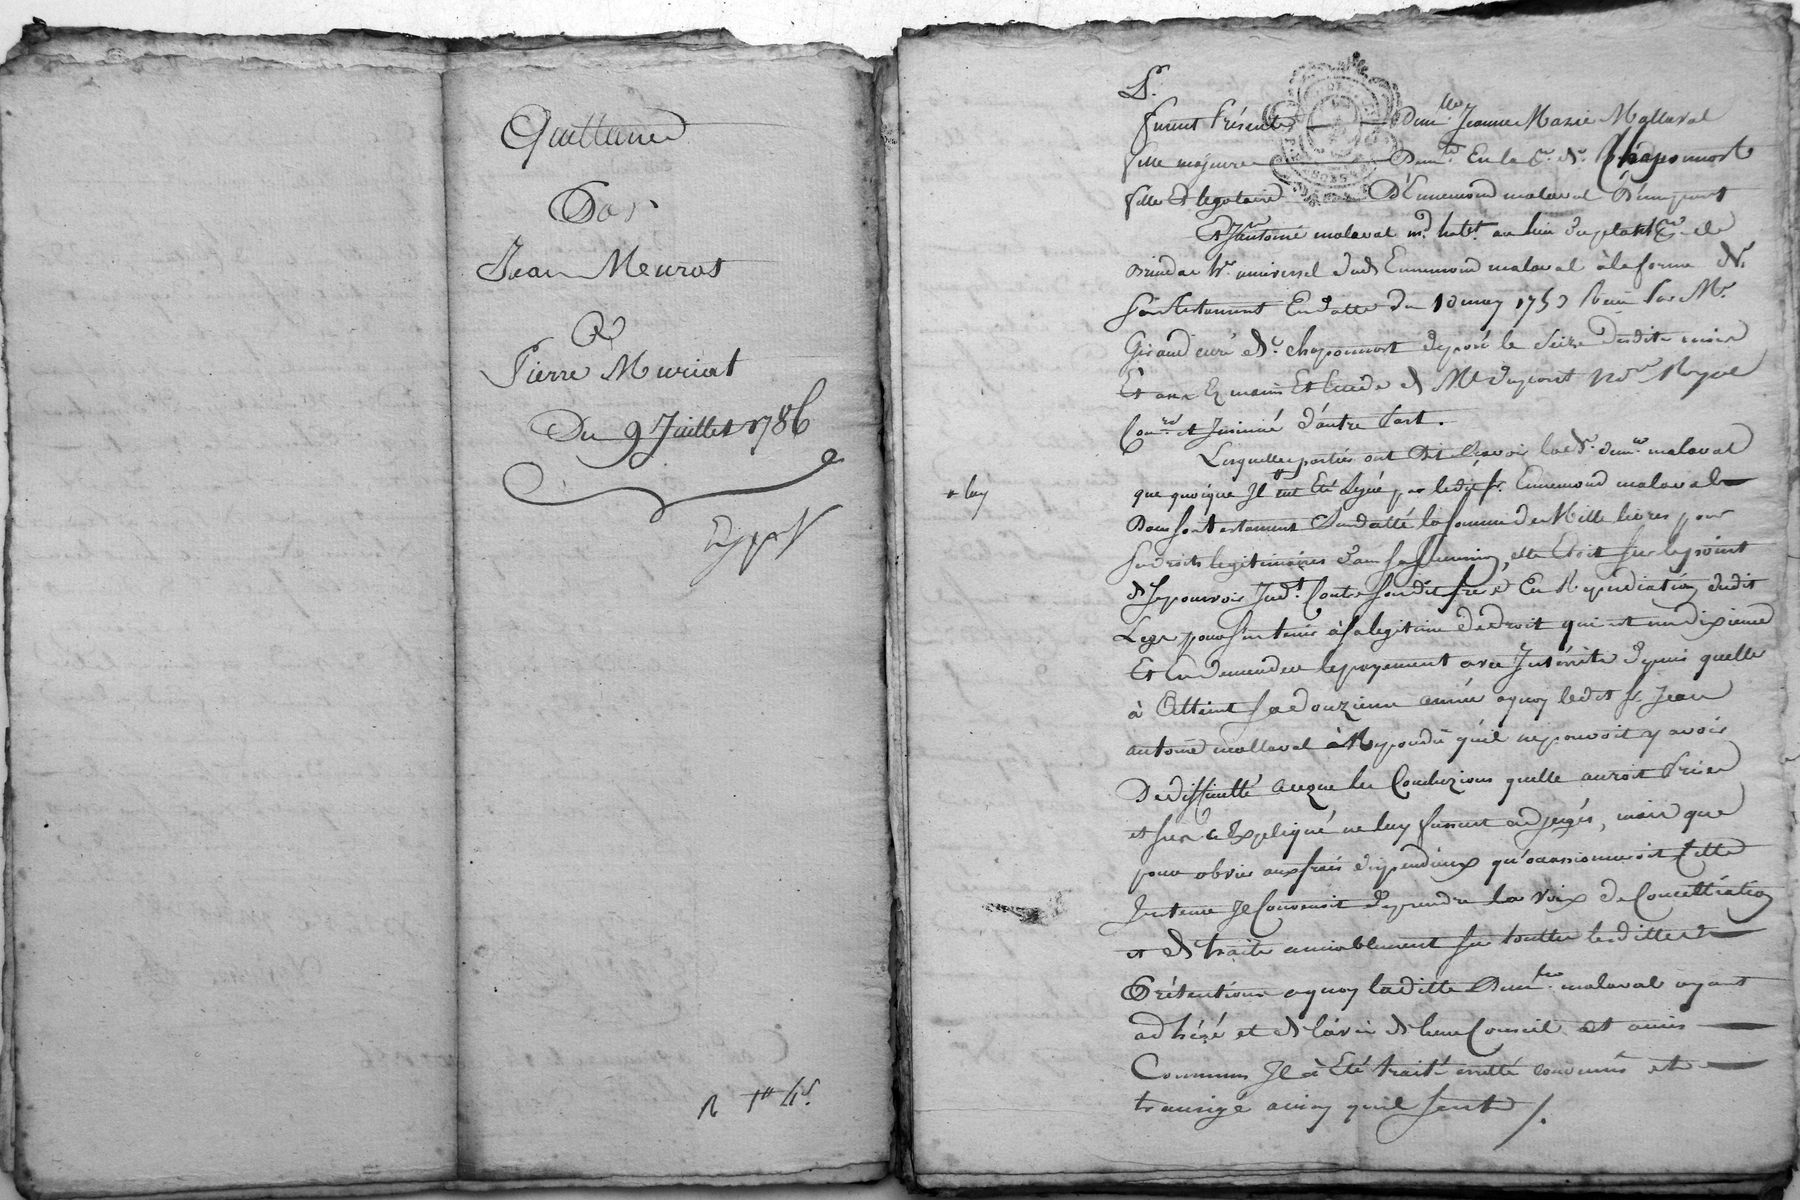 Quittance
Par
Jean Meurat
A
Pierre Muriat
Du 9 Juillet 1786
Expert
1# 4s.
furent Présents Dem.lle Jeanne Marie Mallaval
fille majeure Dem.te En la P. de St. Chaponnost
fille Et legataire D'Ennemond malaval D'une part
Et Jean antoine malaval md. habt. au lieu du plat de
Brindas hr. universel dud. Ennemond malaval à la forme de
Son testament En datte du 10 may 1753 Recu Par Mr.
Giraud curé de chaponnost deposé le Seize dudit mois
Et an Ez mains Et Etude de Me dupont Nore Royal
Con.re et Insinué d'autre Part.
Lesquelles parties ont dit Sçavoir lad. dem.lle malaval
+ luy
que quoique Il + ait Eté Legué par ledit sr. Ennemond malaval
Dans son testament Sus datté la somme de Mille livres pour
Ses droits legitimaires dans sa Succession, elle Etoit sur le point
de Se pourvoir Jud.t Contre Son dit frere En Repudiation dudit
Legs pour s'en tenir à sa legitime de droit qui est un dixieme
Et En demander le payement avec Interrêts depuis quelle
à Atteint sa douzieme année aquoy ledit sr. Jean
antoine mallaval à Repondu qu'il ne pouvoit y avoir
De difficulté aceque les Conclusions quelle auroit Prises
et sus Expliqué ne luy fussent adjugés, mais que
pour obvier aux frais dispendieux qu'ocassionneroit Cette
Instence Il Convenoit de prendre la voix de Concilliation
et de traiter amiablement sur toutte les dittes
Prétentions aquoy laditte Dem.lle malaval ayant
adhéré et de l'avis de leur Conseil et amis
Communs Il à Eté traité arretté convenu et
transigé ainsy quil suit